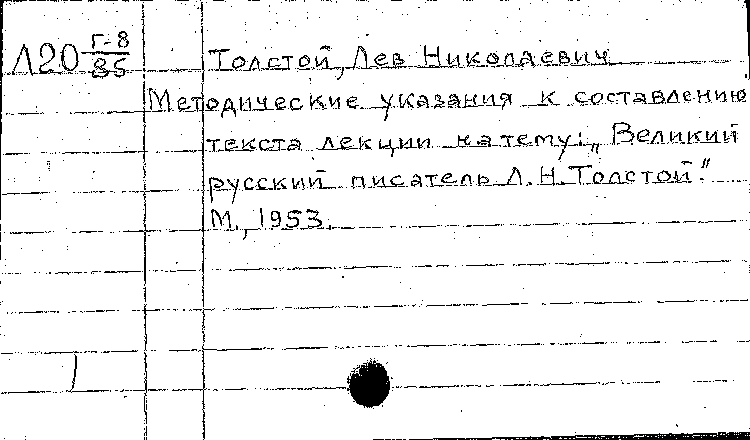 Л20 Г-8/85 Толстой, Лев Николаевич
Методические указания к составлению
текста лекции на тему: „Великий
русский писатель Л.Н. Толстой."
М., 1953.